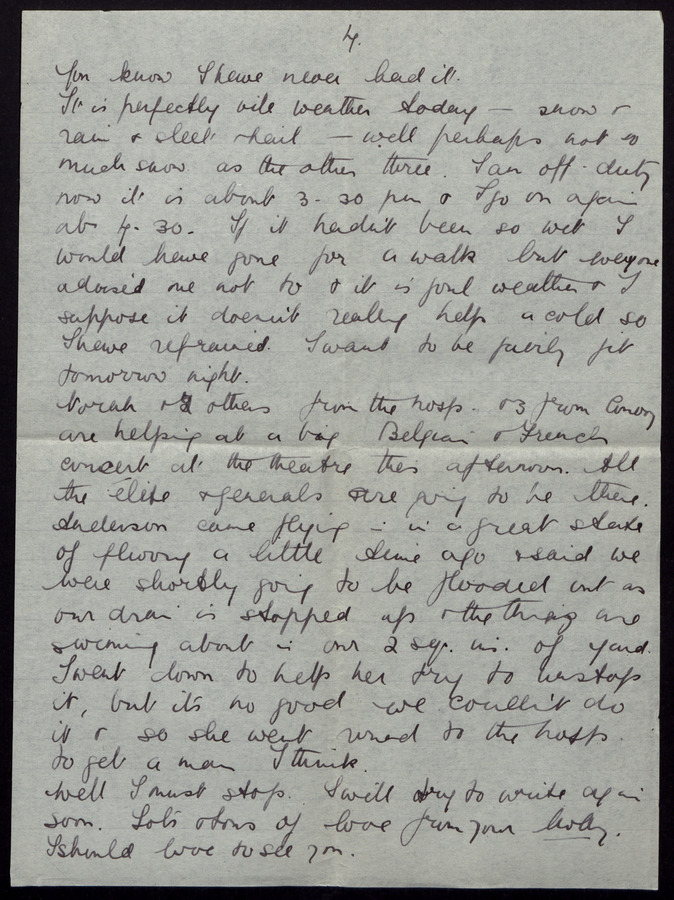 4.
You know I have never had it.
It is perfectly vile weather today – snow &
rain & sleet & hail – well perhaps not so
much snow as the other three. I am off-duty
now it is about 3-30 pm & I go on again
at 4-30. If it hadn't been so wet I
would have gone for a walk but everyone
advised me not to & it is foul weather & I
suppose it doesn't really help a cold so
I have refrained. I want to be fairly fit
tomorrow night.
Norah & others from the hosp. & 3 from
are helping at a big Belgian & French
concert at the theatre this afternoon. All
the élite & generals are going to be there.
Anderson came flying in in a great state
of a little time ago & said we
were shortly going to be flooded out as
our drain is stopped up & the things are
swimming about in our 2 sq. ins. of yard.
I went down to help her try to unstop
it, but it's no good we couldn't do
it & so she went round to the hosp.
to get a man I think.
Well I must stop. I will try to write again
soon. Lots & tons of love from your
I should love to see you.